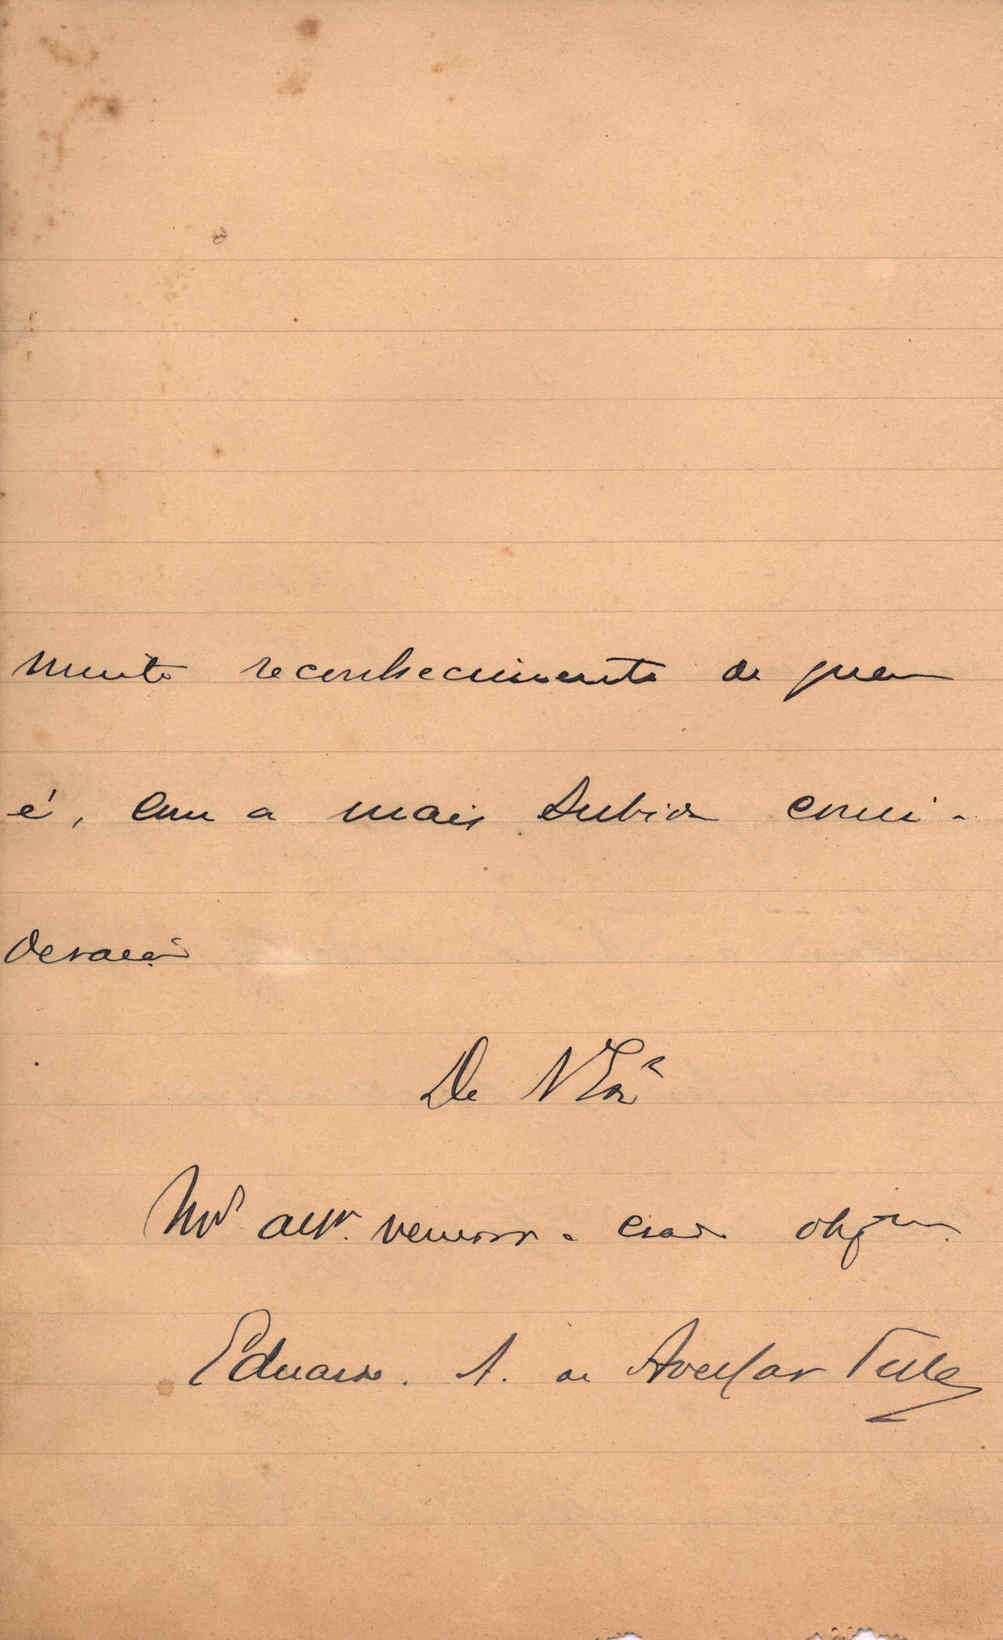 muito reconhecimento de quem
é, com a mais subida consi-
deração
De V Exª
Mtº attº veneror e criado obgmo
Eduardo A. de Avellar Telles